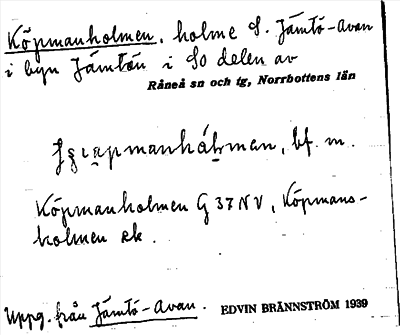 Köpmanholmen. holme S. Jämtö-Avan
i byn Jämtön i SO delen av
Råneå sn och tg, Norrbottens län
bf. m.
Köpmanholmen G 37 NV, Köpmans-
holmen ek.
Uppg. från Jämtö-Avan. EDVIN BRÄNNSTRÖM 1939